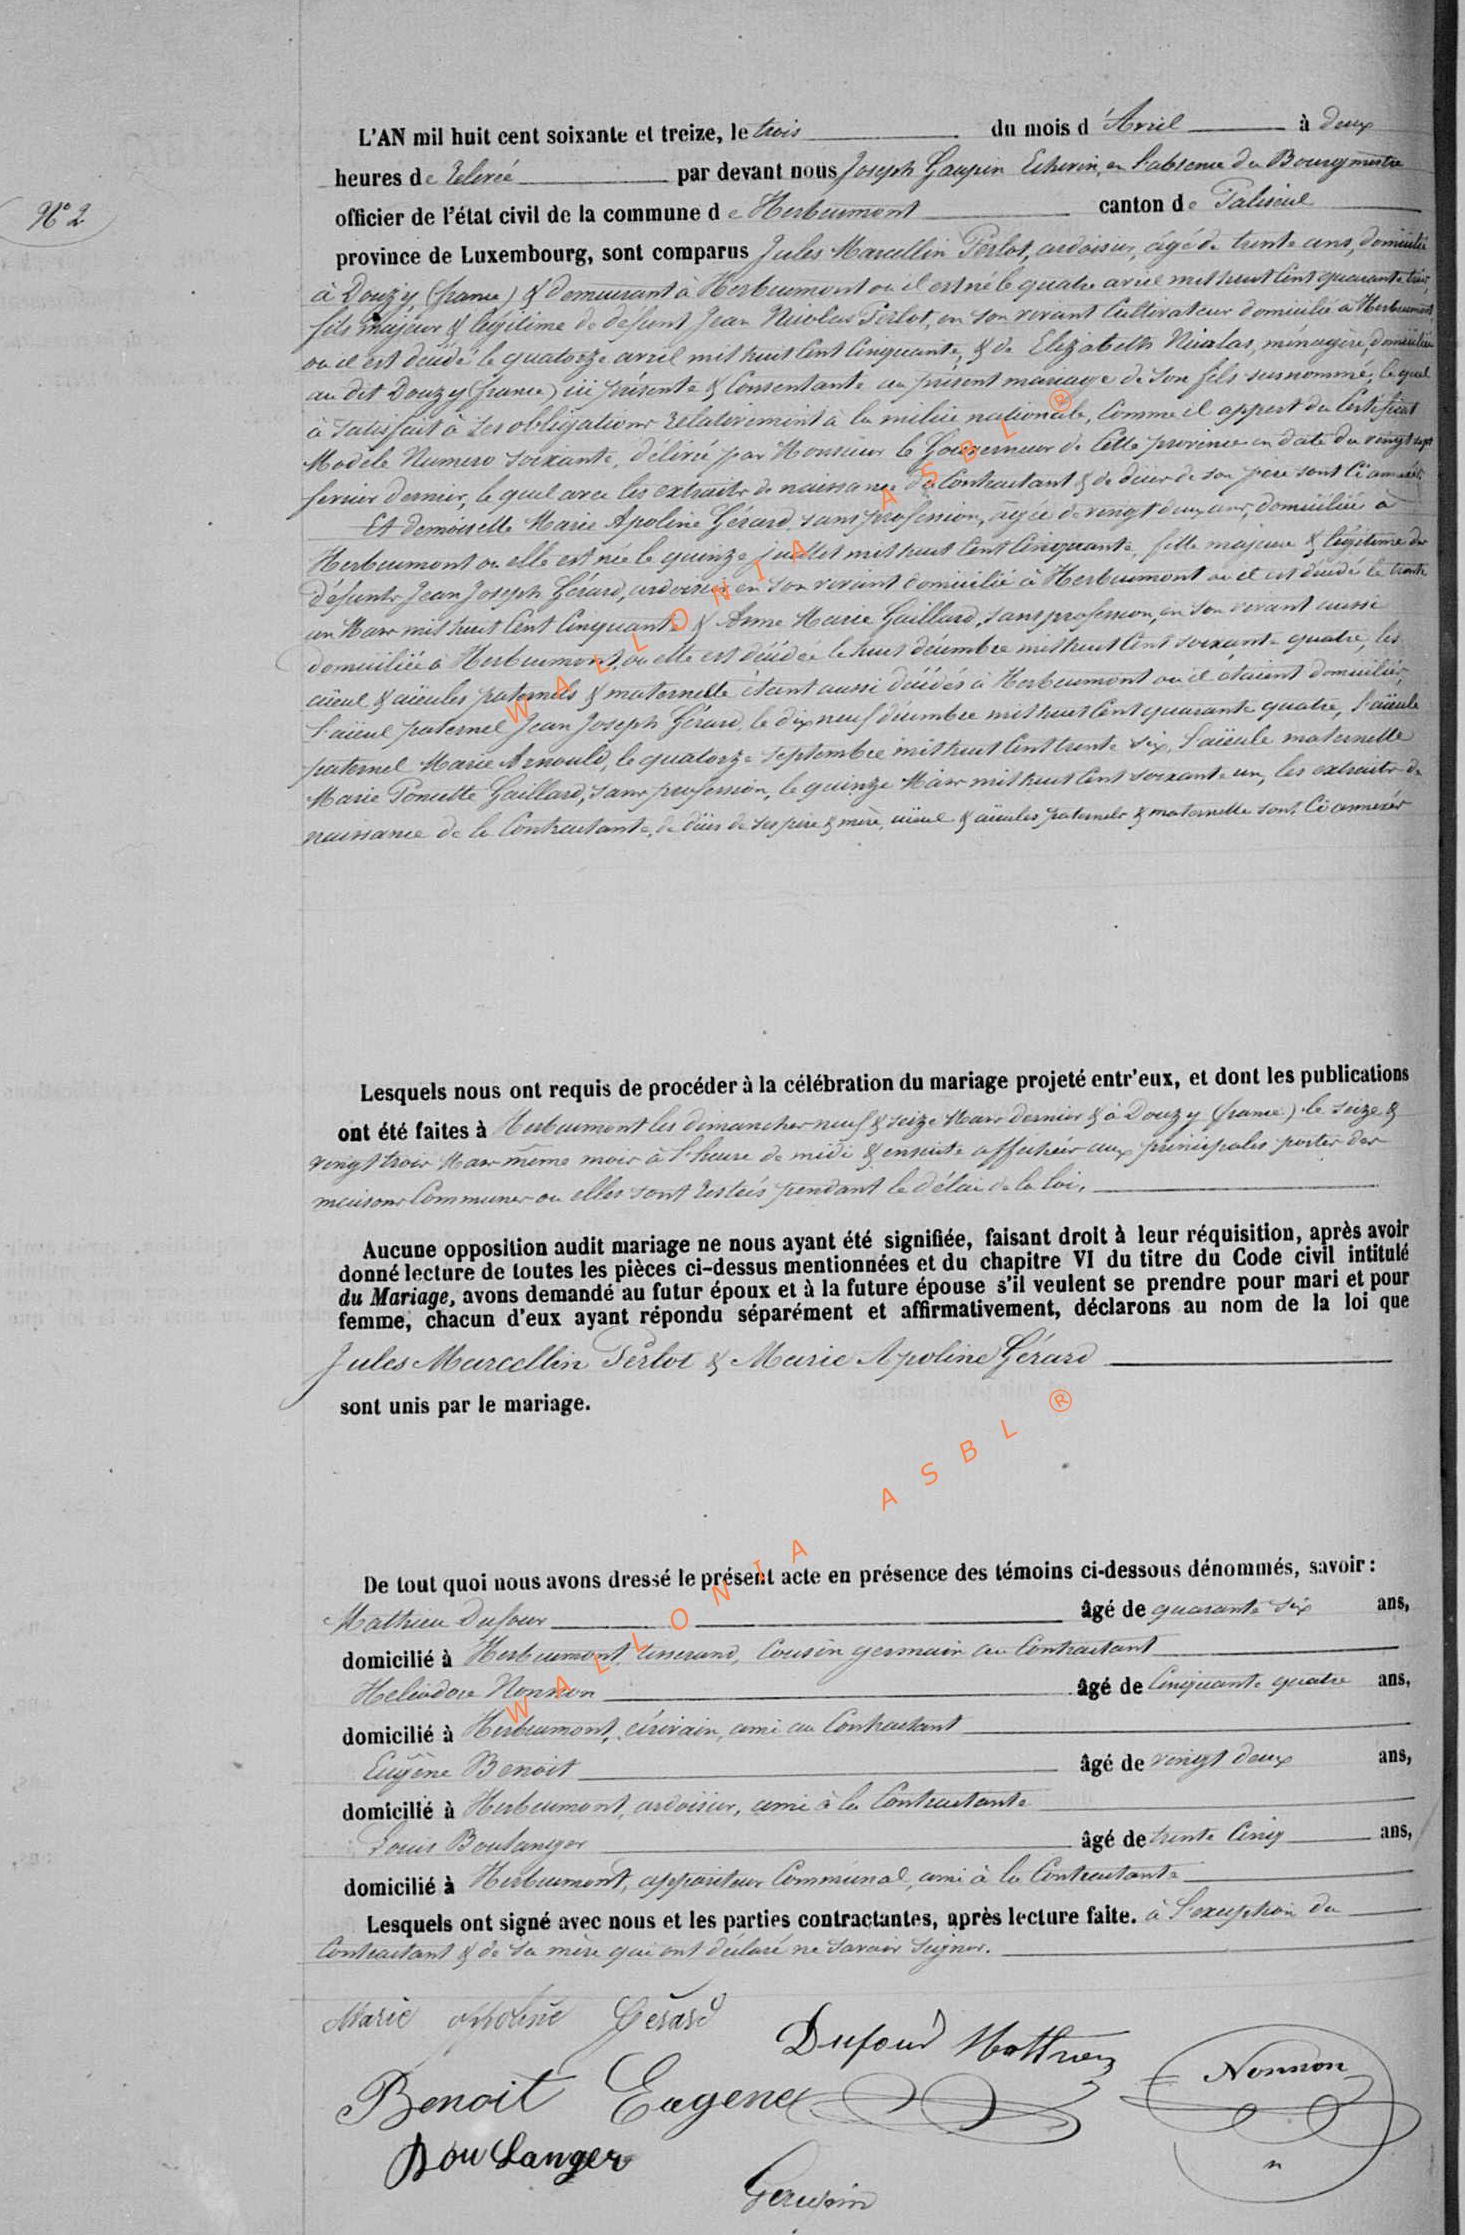 L'AN mil huit cent soixante et treize, le trois du mois d'Avril à deux
heures de relevée par devant nous Joseph Gaupin Echevin, en l'absence du Bourgmestre
N° 2
officier de l'état civil de la commune de Herbeumont canton de Paliseul
province de Luxembourg, sont comparus Jules Marcellin Perlot, ardoisier, âgé de trente ans, domicilié
à Douzy (france) & demeurant à Herbeumont ou il est né le quatre avril mil huit Cent quarante trois,
fils majeur & légitime de defunt Jean Nicolas Perlot, en son vivant Cultivateur domicilié à Herbeumont
ou il est décédé le quatorze avril mil huit Cent Cinquante, & de Elizabeth Nicolas, ménagère, domiciliée
au dit Douzy (france) ici présente & Consentante au présent mariage de son fils surnommé, lequel
à satisfait à ses obligations relativement à la milice nationale, Comme il appert du Certificat
Modele Numero soixante, délivré par Monsieur le Gouverneur de Cette province en date du vingt sept
fevrier dernier, le quel avec les extraits de naissance du Contractant & de décès de son père sont Ci annexés
Et demoiselle Marie Apoline Gérard, sans profession, âgée de vingt deux ans, domiciliée à
Herbeumont ou elle est née le quinze juillet mil huit Cent Cinquante, fille majeure & légitime de
défunts Jean Joseph Gérard, ardoisier en son vivant domicilié à Herbeumont ou il est décédé le trente
un Mars mil huit Cent Cinquante & Anne Marie Gaillard, sans profession, en son vivant aussi
domiciliée à Herbeumont, ou elle est décédée le huit décembre mil huit Cent soixante quatre, les
aïeul & aïeules paternels & maternelle étant aussi décédés à Herbeumont ou il étaient domiciliés,
l'aïeul paternel Jean Joseph Gérard, le dix neuf décembre mil huit Cent quarante quatre, l'aïeule
paternel Marie Arnould, le quatorze septembre mil huit Cent trente six, l'aïeule maternelle
Marie Poncette Gaillard, sans profession, le quinze Mars mil huit Cent soixante un, les extraits de
naissance de la Contractante, de décès de ses père & mère, aïeul & aïeules paternels & maternelle sont Ci annexés
Lesquels nous ont requis de procéder à la célébration du mariage projeté entr'eux, et dont les publications
ont été faites à Herbeumont les dimanches neuf & seize Mars dernier & à Douzy (france) le seize &
vingt trois Mars même mois à l'heure de midi & ensuite affichées aux principales portes des
maisons Communes ou elles sont restées pendant le délai de la loi.
Aucune opposition audit mariage ne nous ayant été signifiée, faisant droit à leur réquisition, après avoir
donné lecture de toutes les pièces ci-dessus mentionnées et du chapitre VI du titre du Code civil intitulé
du Mariage, avons demandé au futur époux et à la future épouse s'il veulent se prendre pour mari et pour
femme, chacun d'eux ayant répondu séparément et affirmativement, déclarons au nom de la loi que
Jules Marcellin Perlot & Marie Apoline Gérard
sont unis par le mariage.
De tout quoi nous avons dressé le présent acte en présence des témoins ci-dessous dénommés, savoir :
Mathieu Dufour âgé de quarante six ans,
domicilié à Herbeumont, tisserand, Cousin germain au Contractant
Héliodore Nonnon âgé de Cinquante quatre ans,
domicilié à Herbeumont, écrivain, ami au Contractant
Eugène Benoit âgé de vingt deux ans,
domicilié à Herbeumont, ardoisier, ami à la Contractante
Louis Boulanger âgé de trente Cinq ans,
domicilié à Herbeumont, appariteur Communal, ami à la Contractante
Lesquels ont signé avec nous et les parties contractantes, après lecture faite. à l'exception du
Contractant & de sa mère qui ont déclaré ne savoir signer.
Marie appoline Gerard
Dufour Mathieu
Nonnon
Benoit Eugene
Boulanger
Gaupin
WALLONIA ASBL ®
WALLONIA ASBL ®